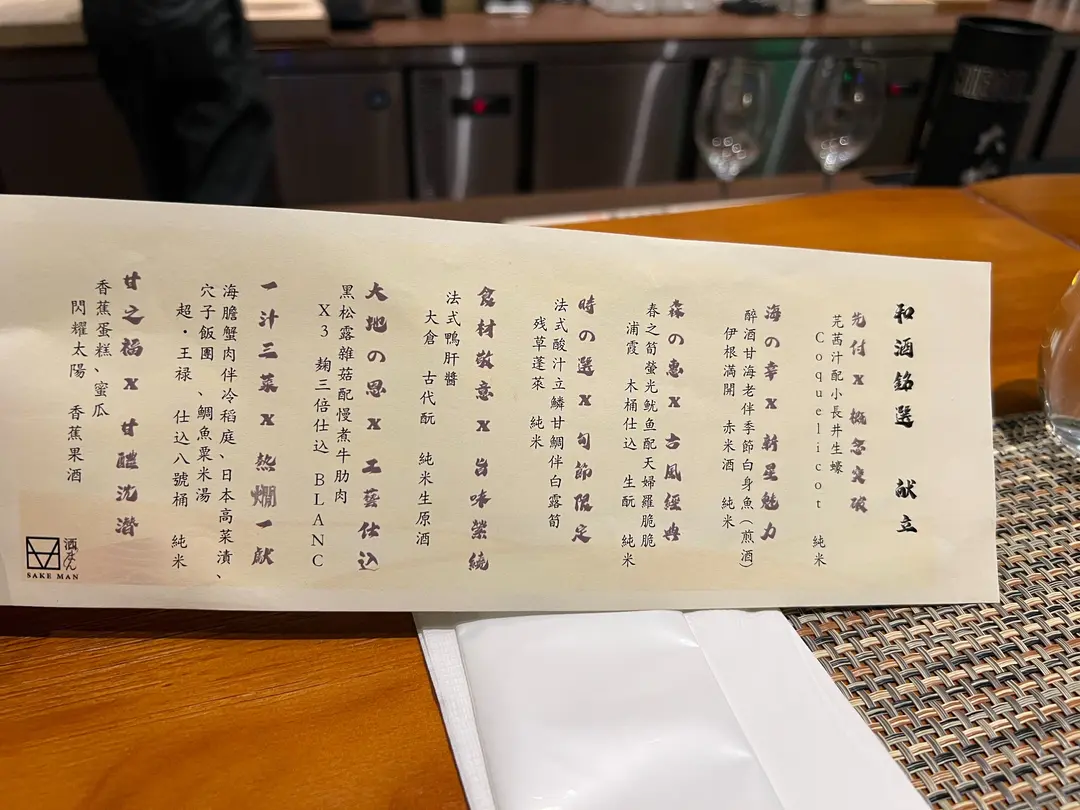 和酒銘選 献立
先付 X 概念突破
芫茜汁配小長井生蠔
Coquelicot 純米
海の幸 X 新星魅力
醉酒甘海老伴季節白身魚(煎酒)
伊根満開 赤米酒 純米
森の恵 X 古風經典
春之筍螢光魷魚配天婦羅脆脆
浦霞 木桶仕込 生酛 純米
時の選 X 旬節限定
法式酸汁立鱗甘鯛伴白露筍
残草蓬莱 純米
食材敬意 X 旨味榮繞
法式鴨肝醬
大倉 古代酛 純米生原酒
大地の恩 X 工藝仕込
黑松露雜菇配慢煮牛肋肉
X3 麹三倍仕込 BLANC
一汁三菜 X 熱燗一献
海膽蟹肉伴冷稻庭、日本高菜漬、
穴子飯團、鯛魚粟米湯
超・王禄 仕込八號桶 純米
甘之福 X 甘醴沈潛
香蕉蛋糕、蜜瓜
閃耀太陽 香蕉果酒
SAKE MAN